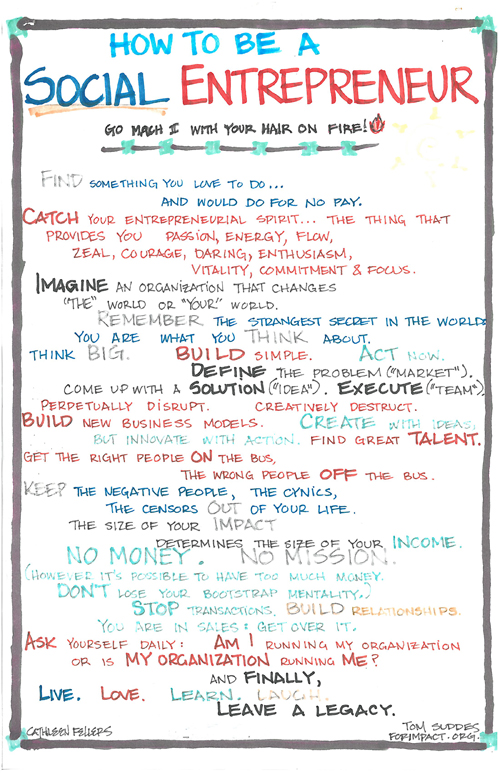 HOW TO BE A
SOCIAL ENTREPRENEUR
GO MACH II WITH YOUR HAIR ON FIRE!
FIND SOMETHING YOU LOVE TO DO...
AND WOULD DO FOR NO PAY.
CATCH YOUR ENTREPRENEURIAL SPIRIT... THE THING THAT
PROVIDES YOU PASSION, ENERGY, FLOW,
ZEAL, COURAGE, DARING, ENTHUSIASM,
VITALITY, COMMITMENT & FOCUS.
IMAGINE AN ORGANIZATION THAT CHANGES
"THE" WORLD OR "YOUR" WORLD.
REMEMBER THE STRANGEST SECRET IN THE WORLD:
YOU ARE WHAT YOU THINK ABOUT.
THINK BIG. BUILD SIMPLE. ACT NOW.
DEFINE THE PROBLEM ("MARKET").
COME UP WITH A SOLUTION ("IDEA"). EXECUTE ("TEAM").
PERPETUALLY DISRUPT. CREATIVELY DESTRUCT.
BUILD NEW BUSINESS MODELS. CREATE WITH IDEAS,
BUT INNOVATE WITH ACTION. FIND GREAT TALENT.
GET THE RIGHT PEOPLE ON THE BUS,
THE WRONG PEOPLE OFF THE BUS.
KEEP THE NEGATIVE PEOPLE, THE CYNICS,
THE CENSORS OUT OF YOUR LIFE.
THE SIZE OF YOUR IMPACT
DETERMINES THE SIZE OF YOUR INCOME.
NO MONEY. NO MISSION.
(HOWEVER IT'S POSSIBLE TO HAVE TOO MUCH MONEY.
DON'T LOSE YOUR BOOTSTRAP MENTALITY.)
STOP TRANSACTIONS. BUILD RELATIONSHIPS.
YOU ARE IN SALES: GET OVER IT.
ASK YOURSELF DAILY: AM I RUNNING MY ORGANIZATION
OR IS MY ORGANIZATION RUNNING ME?
AND FINALLY,
LIVE. LOVE. LEARN. LAUGH.
LEAVE A LEGACY.
CATHLEEN FELLERS
TOM SUDDES
FORIMPACT.ORG.